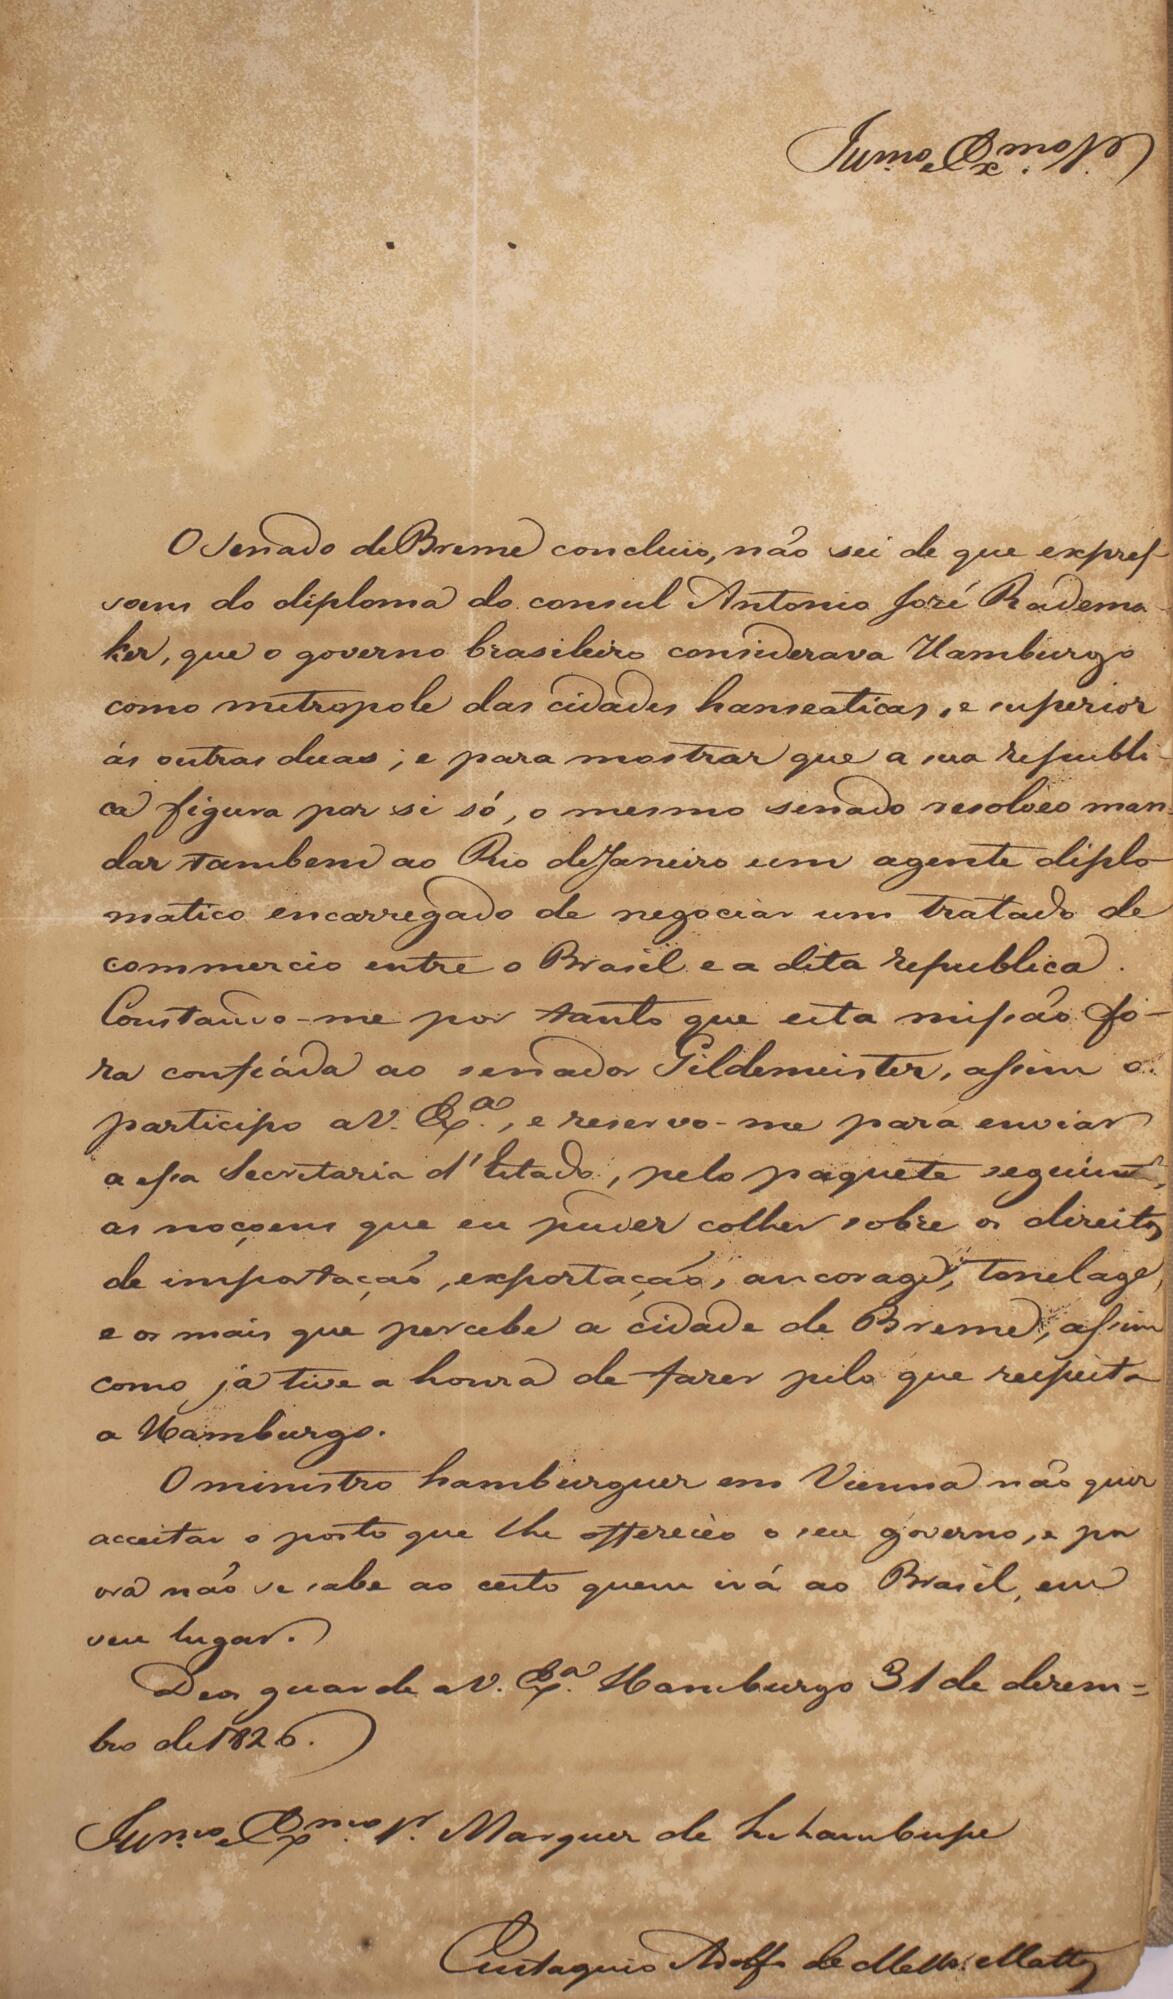 Illmo. e Exmo. Sr.
O senado de Breme concluio, não sei de que expres-
soens do diploma do consul Antonio José Radema-
ker, que o governo brasileiro considerava Hamburgo
como metropole das cidades hanseaticas, e superior
ás outras duas; e para mostrar que a sua republi-
ca figura por si só, o mesmo senado resolveo man-
dar tambem ao Rio de Janeiro um agente diplo-
matico encarregado de negociar um tratado de
commercio entre o Brasil e a dita republica.
Constando-me por tanto que esta missão fo-
ra confiáda ao senador Gildemeister, assim o
participo a V. Exa., e reservo-me para enviar
a essa Secretaria d'Estado, pelo paquete seguinte,
as noçoens que eu puder colher sobre os direitos
de importação, exportação, ancorage, tonelage,
e os mais que percebe a cidade de Breme, assim
como já tive a honra de fazer pelo que respeita
a Hamburgo.
O ministro hamburguez em Vienna não quer
acceitar o posto que lhe offereceo o seu governo, e por
ora não se sabe ao certo quem irá ao Brasil, em
seu lugar.
Deos guarde a V. Exa. Hamburgo 31 de dezem=
bro de 1826.
Illmo. e Exmo. Sr. Marquez de Inhambupe
Eustaquio Adolfo de Mello Mattos